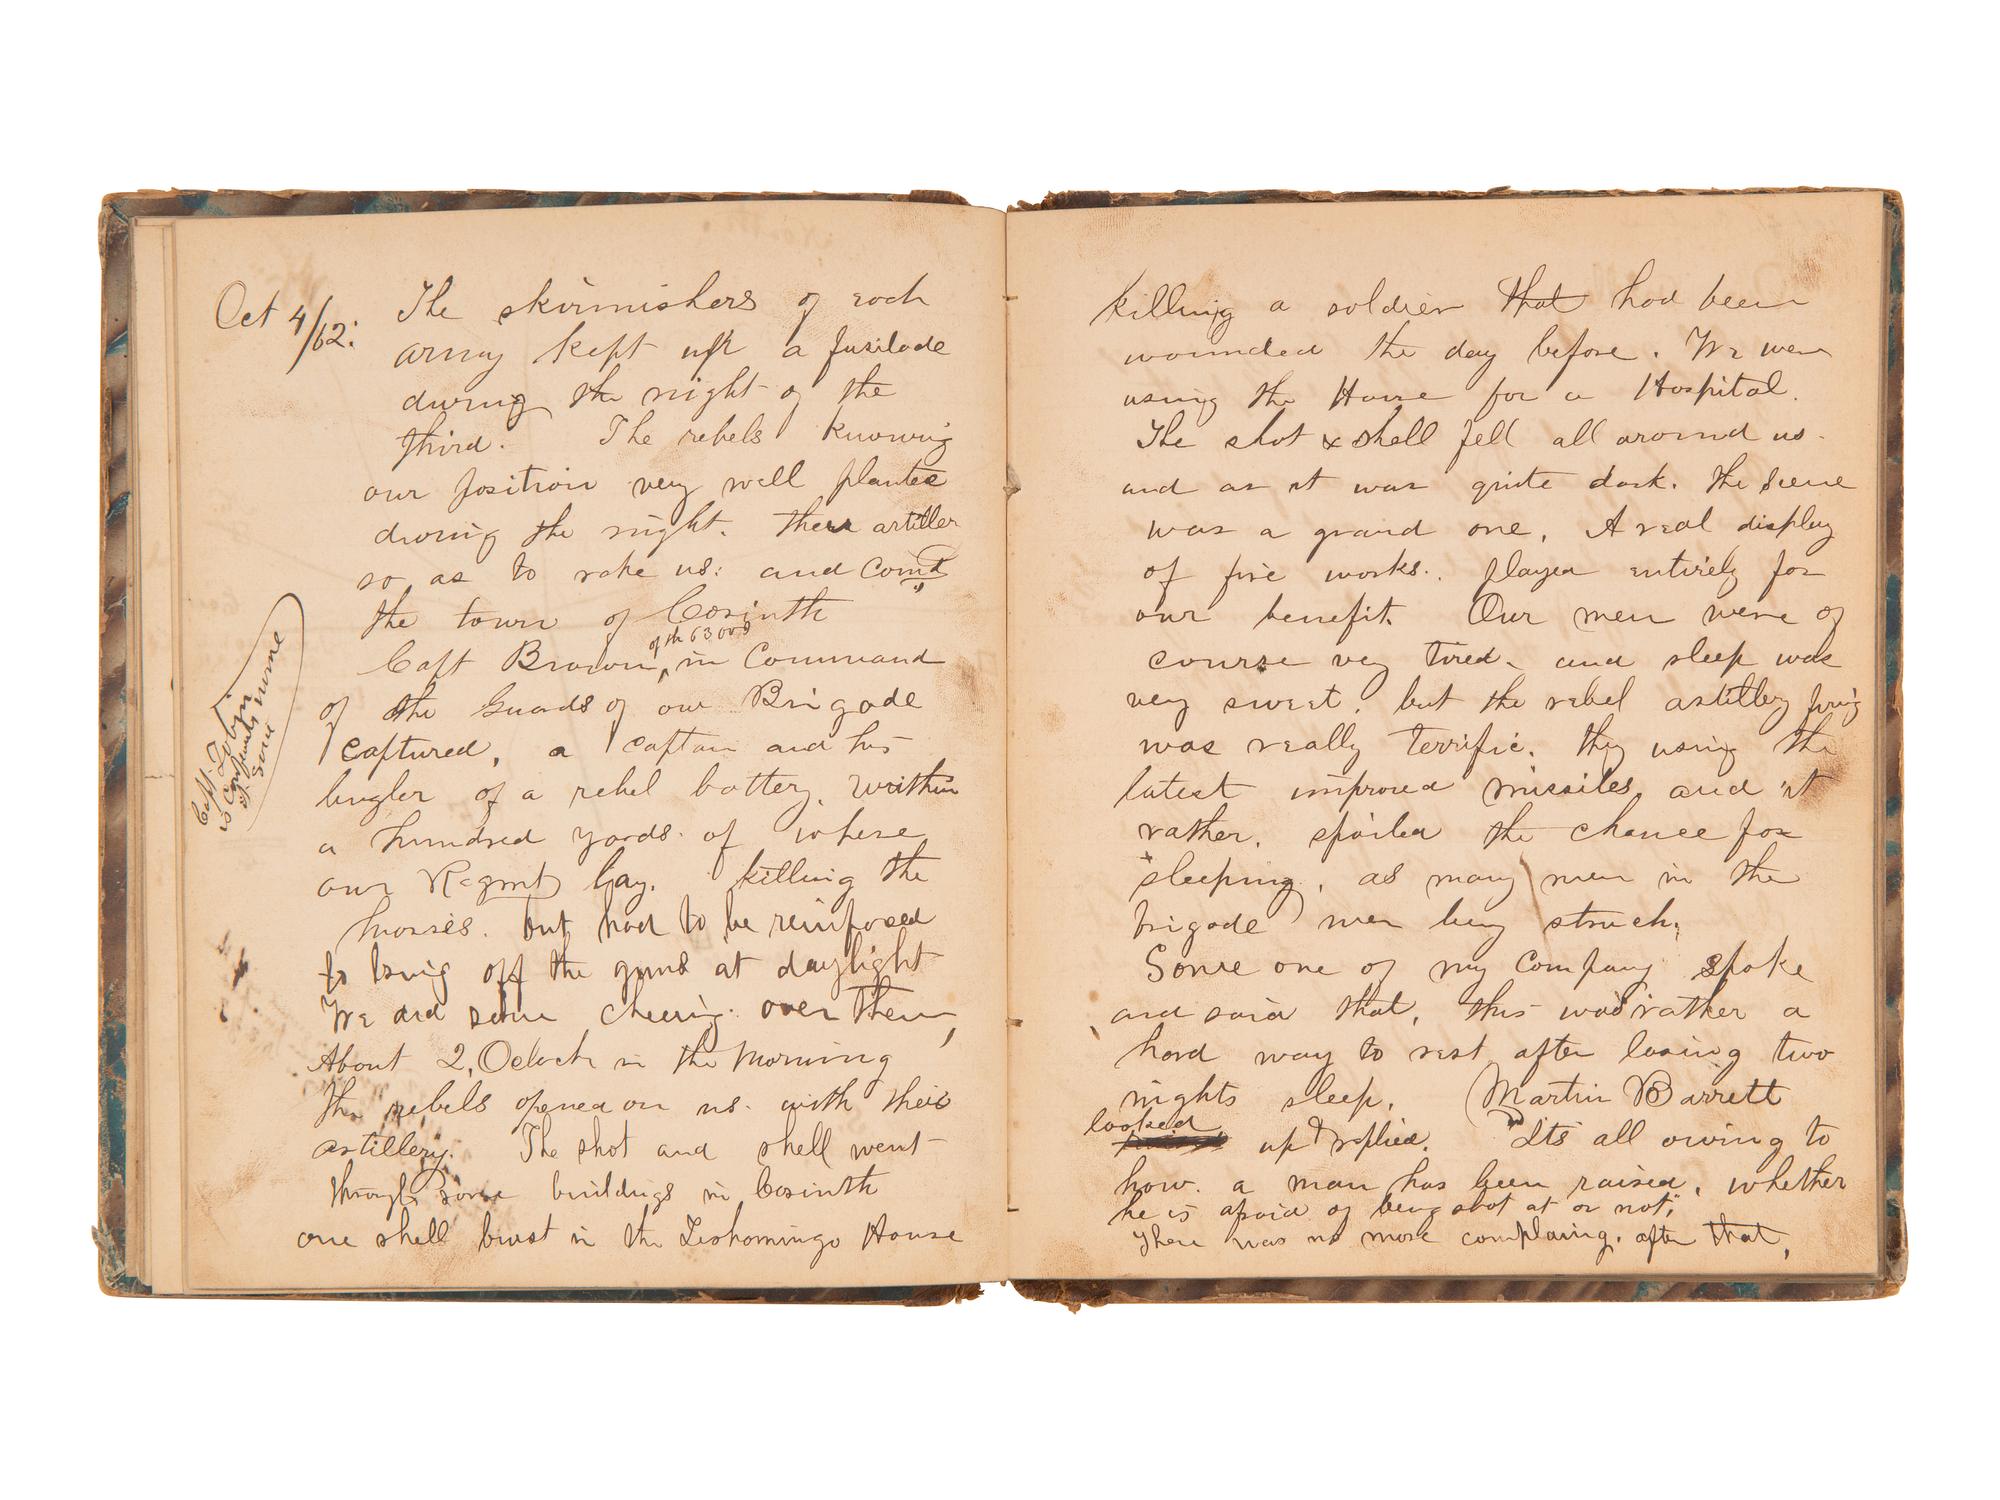 Oct 4/62:
The skirmishers of each
army kept up a fusilade
during the night of the
third. The rebels knowing
our position very well planted
during the night. their artiller
so as to rake us: and Comd
the town of Corinth
Capt Brown, of the 63 Ohio in Command
of the Guards of our Brigade
captured, a captain and his
bugler of a rebel battery, within
a hundred yards of where
our Regmt lay. killing the
horses. but had to be reinforsed
to bring off the guns at daylight
We did some cheering. over them,
About 2, Oclock in the Morning
the rebels opened on us. with their
artillery. The shot and shell went
through some buildings in Corinth
one shell burst in the Tishomingo House
Capt. Tobin
is Confederates name
it. said
killing a soldier that had been
wounded the day before. We were
using the House for a Hospital.
The shot & shell fell all around us.
and as it was quite dark. the Scene
was a grand one. A real display
of fire works. played entirely for
our benefit. Our men were of
course very tired. and sleep was
very sweet. but the rebel artillery firing
was really terrific. they using the
latest improved missiles and it
rather. spoiled the chance for
sleeping, as many men in the
brigade wer being struck.
Some one of my Company spoke
and said that, this was rather a
hard way to rest after losing two
nights sleep. Martin Barrett
looked up & replied. "Its all owing to
how. a man has been raised, whether
he is afraid of being shot at or not."
There was no more complaing. after that,